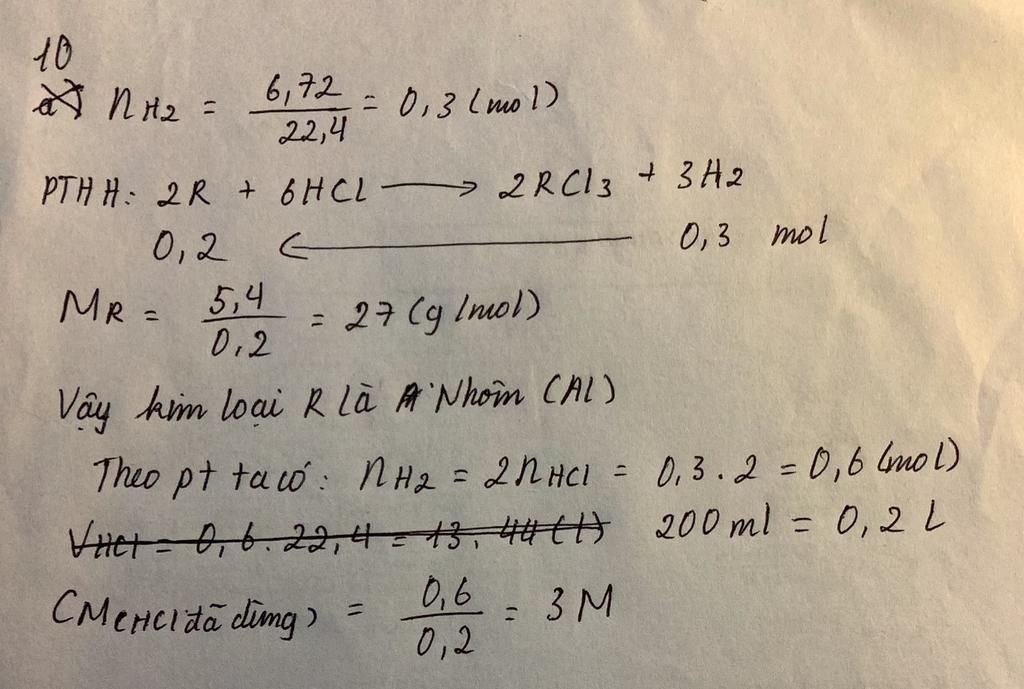 10
a) nH2 = 6,72 / 22,4 = 0,3 (mol)
PTHH: 2R + 6HCl → 2RCl3 + 3H2
0,2 ← 0,3 mol
MR = 5,4 / 0,2 = 27 (g/mol)
Vậy kim loại R là Nhôm (Al)
Theo pt ta có: nH2 = 2nHCl = 0,3 . 2 = 0,6 (mol)
VHCl = 0,6 . 22,4 = 13,44 (l) 200 ml = 0,2 L
CM(HCl đã dùng) = 0,6 / 0,2 = 3M